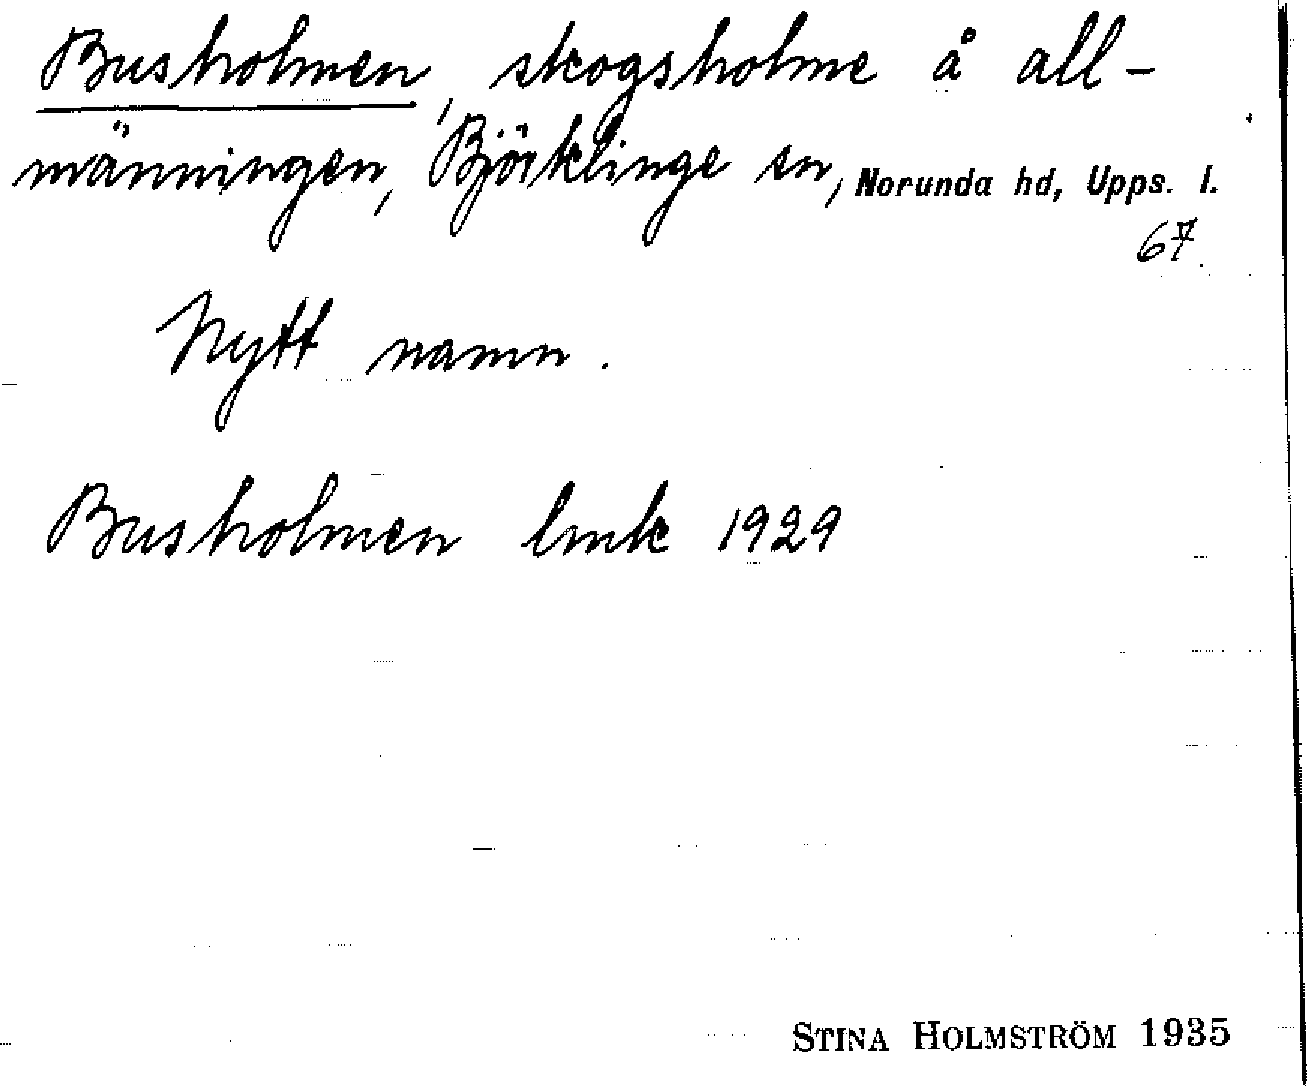 Busholmen, skogsholme å all-
männingen, Björklinge sn, Norunda hd, Upps. l.
67
Nytt namn.
Busholmen lmk 1929
STINA HOLMSTRÖM 1935